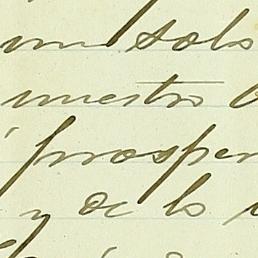 un solo
nuestro
prosper
y de lo